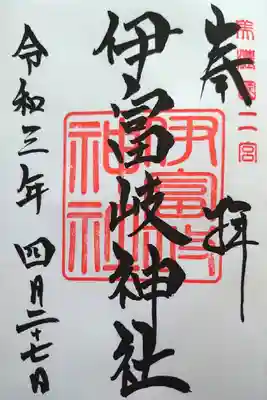 美濃国二宮
奉拝
伊富岐神社
伊富岐
神社
令和三年
四月二十七日